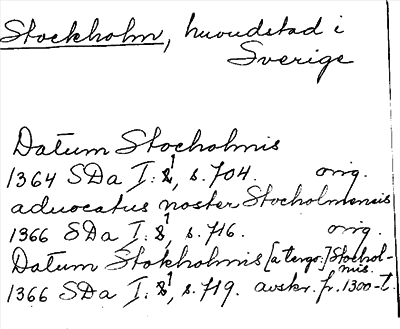 Stockholm, huvudstad i
Sverige
Datum Stocholmis
1364 SDa I:1, s. 704. orig.
aduocatus noster Stocholmensis
1366 SDa I:1, s. 716. orig.
Datum Stokholmis [a tergo:] Stochol-
mis.
1366 SDa I:1, s. 719. avskr. fr. 1300-t.